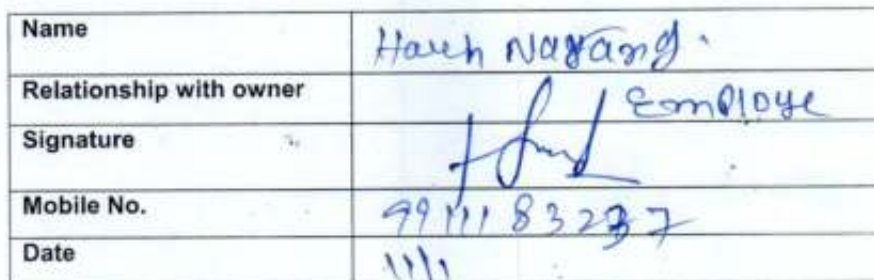 Name Harsh Narang.
Relationship with owner Employe
Signature
Mobile No. 9911183237
Date